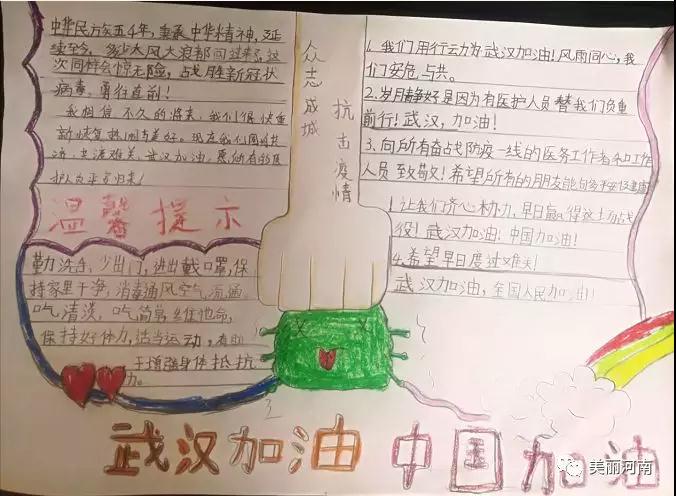 中华民族五千年，秉承中华精神，延
续至今，多少大风大浪都闯过来了，这
次同样会惊无险，战胜新冠状
病毒，勇往直前！
我相信不久的将来，我们很快重
新恢复热闹美好。现在我们同舟共
济，共渡难关，武汉加油，愿所有的医
护人员平安归来！
温馨提示
勤洗手，少出门，进出戴口罩，保
持家里干净，消毒通风空气流通。
吃清淡，吃简单，维他命，
保持好体力，适当运动，有助
于增强身体抵抗
力。
众志成城
抗击疫情
1、我们用行动为武汉加油！风雨同心，我
们安危与共。
2、岁月静好是因为有医护人员替我们负重
前行！武汉，加油！
3、向所有奋战防疫一线的医务工作者和工作
人员致敬！希望所有的朋友能够多平安健康
！让我们齐心协力，早日赢得这场战
役！武汉加油！中国加油！
4、希望早日度过难关！
武汉加油，全国人民加油！
武汉加油 中国加油
美丽河南